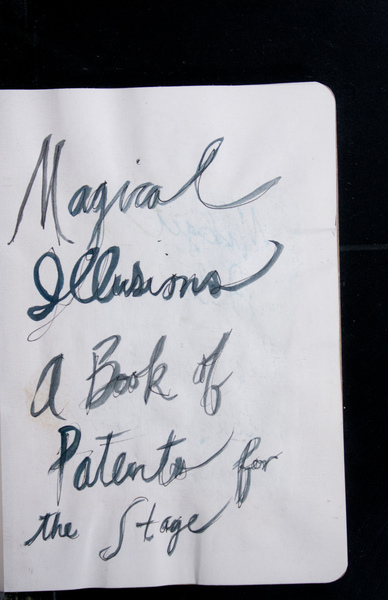 Magical
Illusions
A Book of
Patents for
the Stage